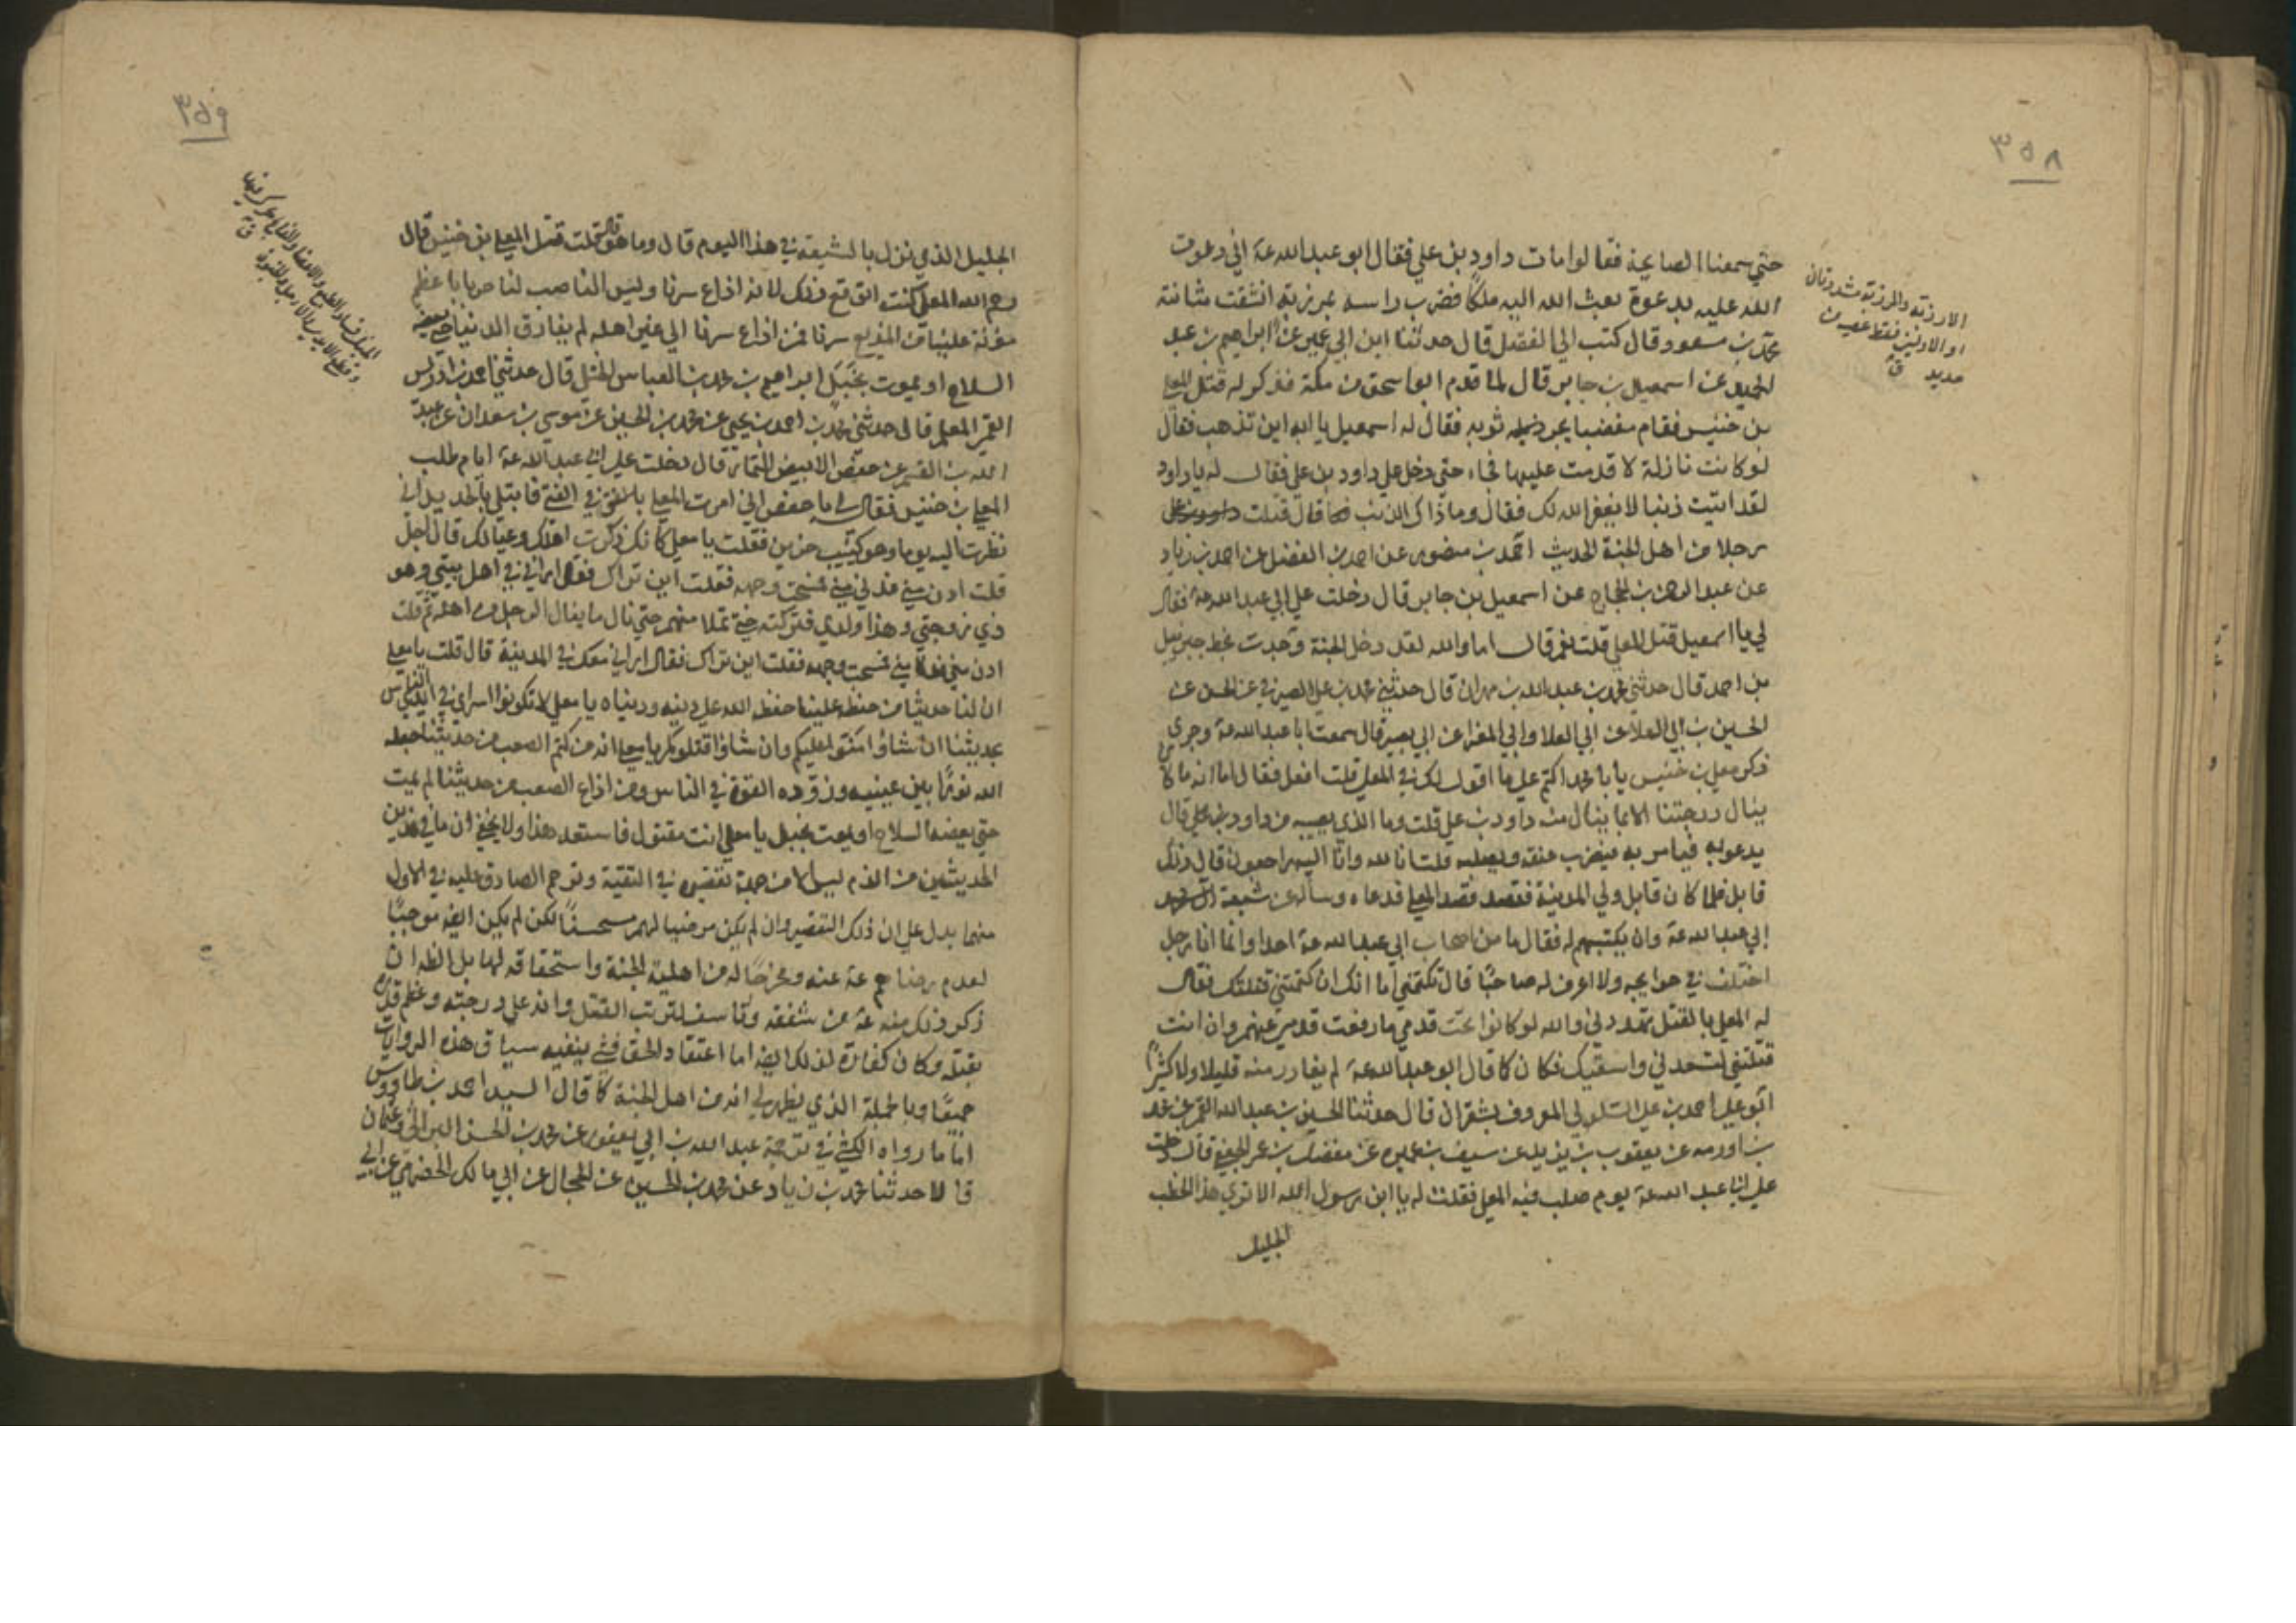 ٣٥٨
حتى سمعنا الصايحة فقالوا مات داود بن علي فقال ابو عبدالله عة اني دعوت
الله عليه بدعوة بعث الله اليه ملكًا فضرب راسه بمرزبة انشقت مثانته
محمد بن مسعود قال كتب الي الفضل قال حدثنا ابن ابي عمير عن ابراهيم بن عبد
الحميد عن اسمعيل بن جابر قال لما قدم ابو اسحق من مكة فذكر له قتل المعلي
بن خنيس فقام مغضبا يجر ثوبه فقال له اسمعيل يا ابه اين تذهب فقال
لو كانت نازلة لاقدمت عليها فجاء حتى دخل علي داود بن علي فقال له يا داود
لقد اتيت ذنبا لا يغفر الله لك فقال وما ذاك الذنب قال قتلت
رجلا من اهل الجنة الحديث احمد بن منصور عن احمد بن الفضل عن احمد بن زياد
عن عبد الرحمن بن الحجاج عن اسمعيل بن جابر قال دخلت علي ابي عبد الله عة فقال
لي يا اسمعيل قتل المعلي قلت نعم قال اما والله لقد دخل الجنة وجدت بخط جبرئيل
بن احمد قال حدثني محمد بن عبد الله بن مهران قال حدثني محمد بن علي الصيرفي عن الحسن عن
الحسين بن ابي العلا عن ابي العلا وابي المغرا عن ابي بصير قال سمعت ابا عبد الله عة وجرى
ذكر معلي بن خنيس يا با محمد اكتم علي ما اقول لك في المعلي قلت افعل فقال اما انه ما كان
ينال درجتنا الا بما ينال منه داود بن علي قلت وما الذي يصيبه من داود بن علي قال
يدعو به فيامر به فيضرب عنقه ويصلبه قلت انا لله وانا اليه راجعون قال ذلك
قابل فلما كان قابل ولي المدينة فقصد قصد المعلي فدعاه وسأله عن شيعة
ابي عبد الله عة وان يكتبهم له فقال ما من اصحاب ابي عبد الله عة احدا وانما انا رجل
اختلف في حوايجه ولا اعرف له صاحبًا قال تكتمني اما انك ان كتمتني قتلتك فقال
له المعلي بالقتل تهددني والله لو كانوا تحت قدمي ما رفعت قدمي عنهم وان انت
قتلتني لتسعدني واشقيك فكان كما قال ابو عبد الله عة لم يغادر منه قليلا ولا كثيرًا
ابو علي احمد بن علي السلولي المعروف بشقران قال حدثنا الحسين بن عبد الله القمي عن محمد
بن اورمه عن يعقوب بن يزيد عن سيف بن عميره عن مفضل بن عمر الجعفي قال دخلت
علي ابي عبد الله عة يوم صلب فيه المعلي فقلت له يا ابن رسول الله الا ترى هذا الخطب
الجليل
الارزبة والمرزبة مشددتان
او الاولى فقط عصية من
حديد ق
٣٥٩
الجليل الذي نزل بالشيعة في هذا اليوم قال وما هو قلت قتل المعلي بن خنيس قال
رحم الله المعلي كنت اتوقع ذلك لانه اذاع سرنا وليس الناصب لنا حربا باعظم
مؤنة علينا من المذيع سرنا فمن اذاع سرنا الى غير اهله لم يفارق الدنيا حتى يعضه
السلاح او يموت بخبل ابراهيم بن محمد بن العباس الختلي قال حدثني احمد بن ادريس
القمي المعلم قال حدثني محمد بن احمد بن يحيى عن محمد بن الحسين عن موسى بن سعدان عن عبد
الله بن القسم عن حفص الابيض التمار قال دخلت علي ابي عبد الله عة ايام طلب
المعلي بن خنيس فقال لي يا حفص اني امرت المعلي فابتلي بالحديد اني
نظرت اليه يوما وهو كئيب حزين فقلت يا معلي كانك ذكرت اهلك وعيالك قال اجل
قلت ادن مني فدني مني فمسحت وجهه فقلت اين تراك فقال اراني في اهل بيتي وهو
ذي زوجتي وهذا ولدي فتركته حتى تملا منهم حتى نال ما ينال الرجل من اهله ثم قلت
ادن مني فمسحت وجهه فقلت اين تراك فقال اراني معك في المدينة قال قلت يا معلي
ان لنا حديثا من حفظه علينا حفظ الله عليه دينه ودنياه يا معلي لا تكونوا اسرى في ايدي الناس
بحديثنا ان شاؤا منوا عليكم وان شاؤا قتلوكم يا معلي انه من كتم الصعب من حديثنا جعله
الله نورًا بين عينيه وزوده القوة في الناس ومن اذاع الصعب من حديثنا لم يمت
حتى يعضه السلاح او يموت بخبل يا معلي انت مقتول فاستعد هذا ولا يخفى ان ما في هذين
الحديثين من الذم ليس الا من جهة تقصيره في التقية وترحم الصادق عليه في الاول
منهما يدل علي ان ذلك التقصير وان لم يكن مرضيا لهم مستحسنًا لكن لم يكن ايضه موجبًا
لعدم رضاهم عة عنه ومخرجًا له من اهلية الجنة واستحقاقه لها بل الظه ان
ذكر ذلك منه عة من شفقه وتاسف لترتب القتل وانه علي درجته وعظم قدره
بقتله وكان كفارة لذلك ايضه اما اعتقاد الحق فشيء ينفيه سياق هذه الروايات
جميعًا وبالجملة الذي يظهر لي انه من اهل الجنة كما قال السيد احمد بن طاووس
اما ما رواه الكشي في ترجمة عبد الله بن ابي يعفور عن محمد بن الحسن البراثي وعثمان
قالا حدثنا محمد بن زياد عن محمد بن الحسين عن الحجال عن ابي مالك الحضرمي عن ابي